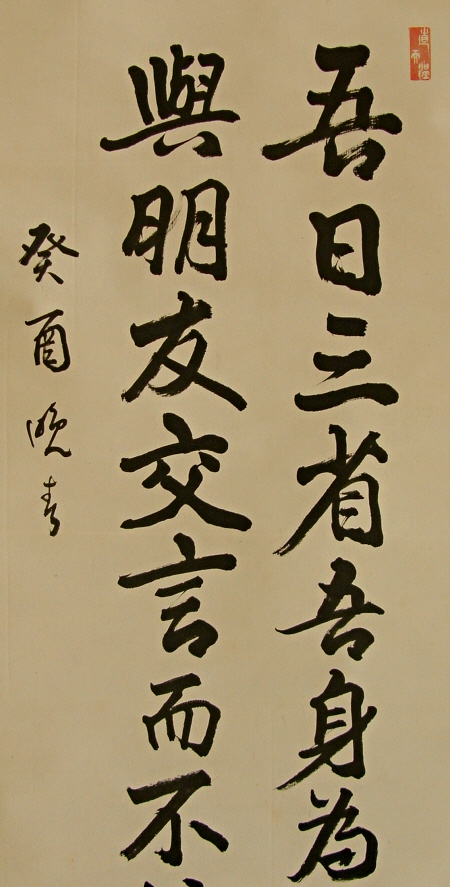 吾日三省吾身為
與明友交言而不
癸酉晚春